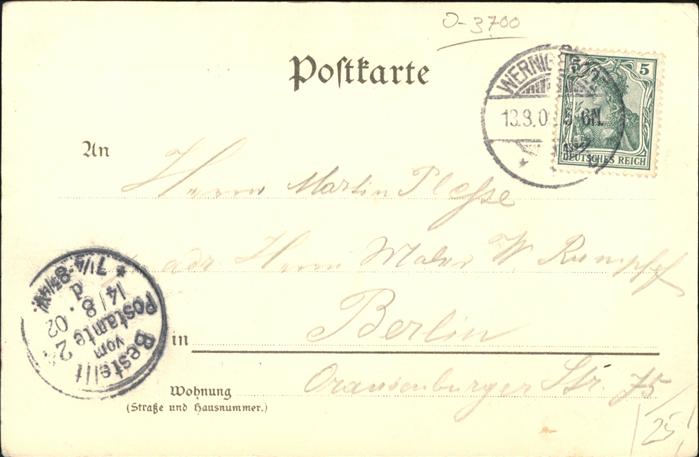 D-3700
Postkarte
WERNIG
13.8.0 5-6N.
5
DEUTSCHES REICH
An
Herrn Martin Plesse
adr Herrn Maler W Rumpf
in Berlin
Wohnung
(Straße und Hausnummer.)
Oranienburger Str. 75
25
Bestellt
vom
Postamte 2
14/8. 02
7¼-8¾V.